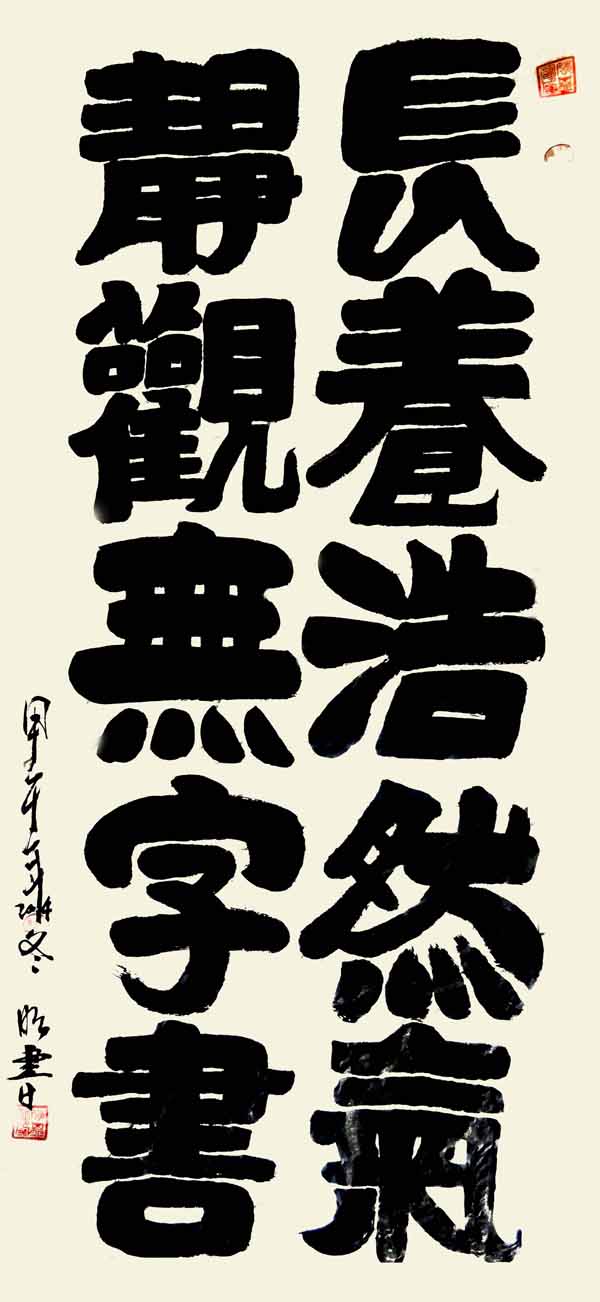 長養浩然氣
靜觀無字書
甲午年
冬